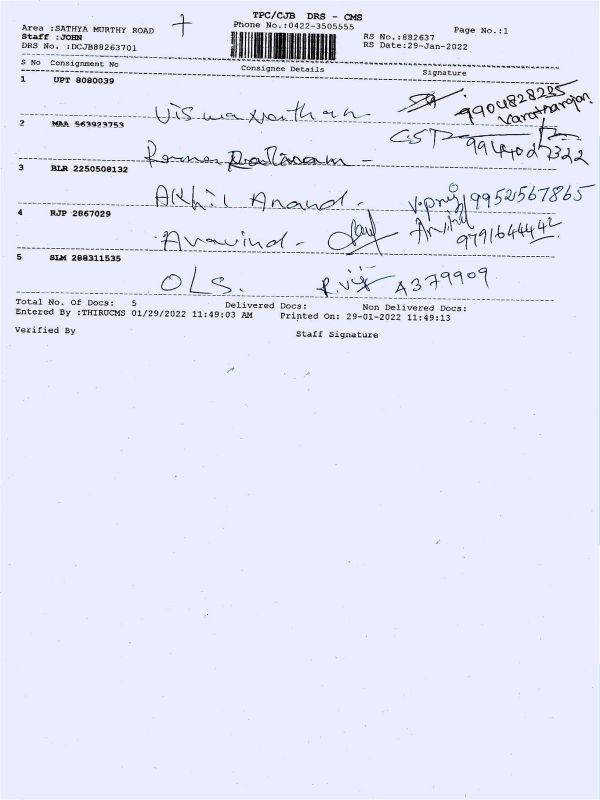 TPC/CJB DRS - CMS
Area :SATHYA MURTHY ROAD Phone No.:0422-3505555 Page No.:1
Staff :JOHN RS No.:882637
DRS No. :DCJB88263701 RS Date:29-Jan-2022
S No Consignment No Consignee Details Signature
1 UPT 8080039
Viswanathan 9904828285
Varatharajan
2 MAA 563923753
CST
3 BLR 2250508132
Akhil Anand. 9952567865
4 RJP 2867029
Aravind - Arvind
9791644442
5 SLM 288311535
OLS. 4379909
Total No. Of Docs: 5 Delivered Docs: Non Delivered Docs:
Entered By :THIRUCMS 01/29/2022 11:49:03 AM Printed On: 29-01-2022 11:49:13
Verified By Staff Signature